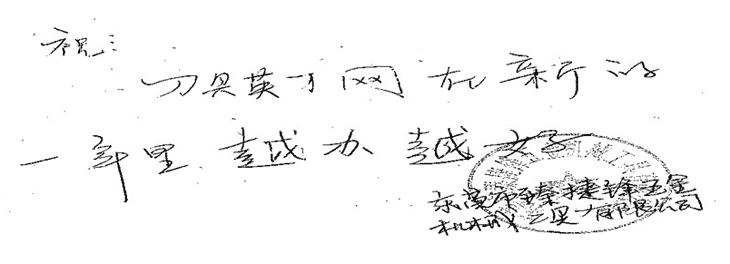 祝:
刀具英才网在新的
一年里 越办越好
东莞市臻捷锋五金
机械工具有限公司